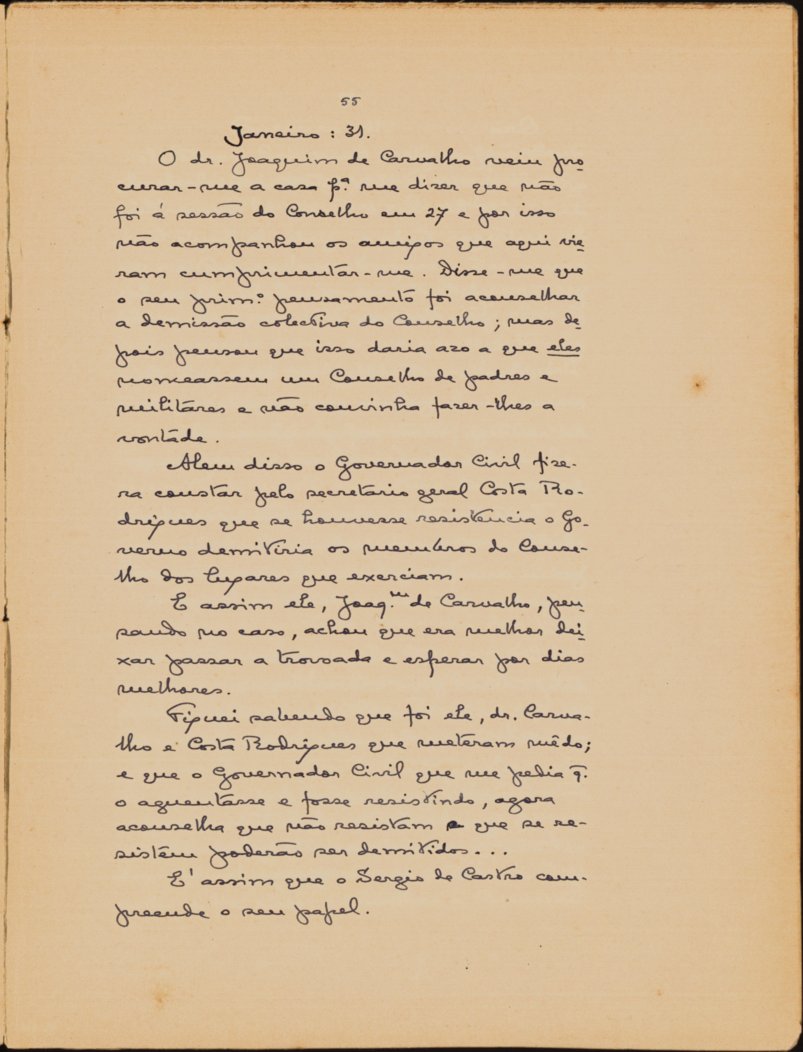 55
Janeiro: 31.
O dr. Joaquim de Carvalho veiu pro-
curar-me a casa pª. me dizer que não
foi á sessão do Conselho em 27 e por isso
não acompanhou os amigos que aqui vie-
ram cumprimentar-me. Disse-me que
o seu prim.º pensamento foi aconselhar
a demissão colectiva do Conselho; mas de-
pois pensou que isso daria azo a que eles
nomeassem um Conselho de padres e
militares e não convinha fazer-lhes a
vontáde.
Alem disso o Governador Civil fize-
ra constar pelo secretario geral Costa Ro-
drigues que se houvesse resistencia o Go-
verno demitiria os membros do Conse-
lho dos lugares que exerciam.
E assim ele, Joaq.ᵐ de Carvalho, pen-
sando no caso, achou que era melhor dei-
xar passar a trovoada e esperar por dias
melhores.
Fiquei sabendo que foi ele, dr. Carva-
lho e Costa Rodrigues que meteram mêdo;
e que o Governador Civil que me pedia q̃.
o aguentasse e fosse resistindo, agora
aconselha que não resistam e que se re-
sistem poderão ser demitidos...
E' assim que o Sergio de Castro com-
preende o seu papel.